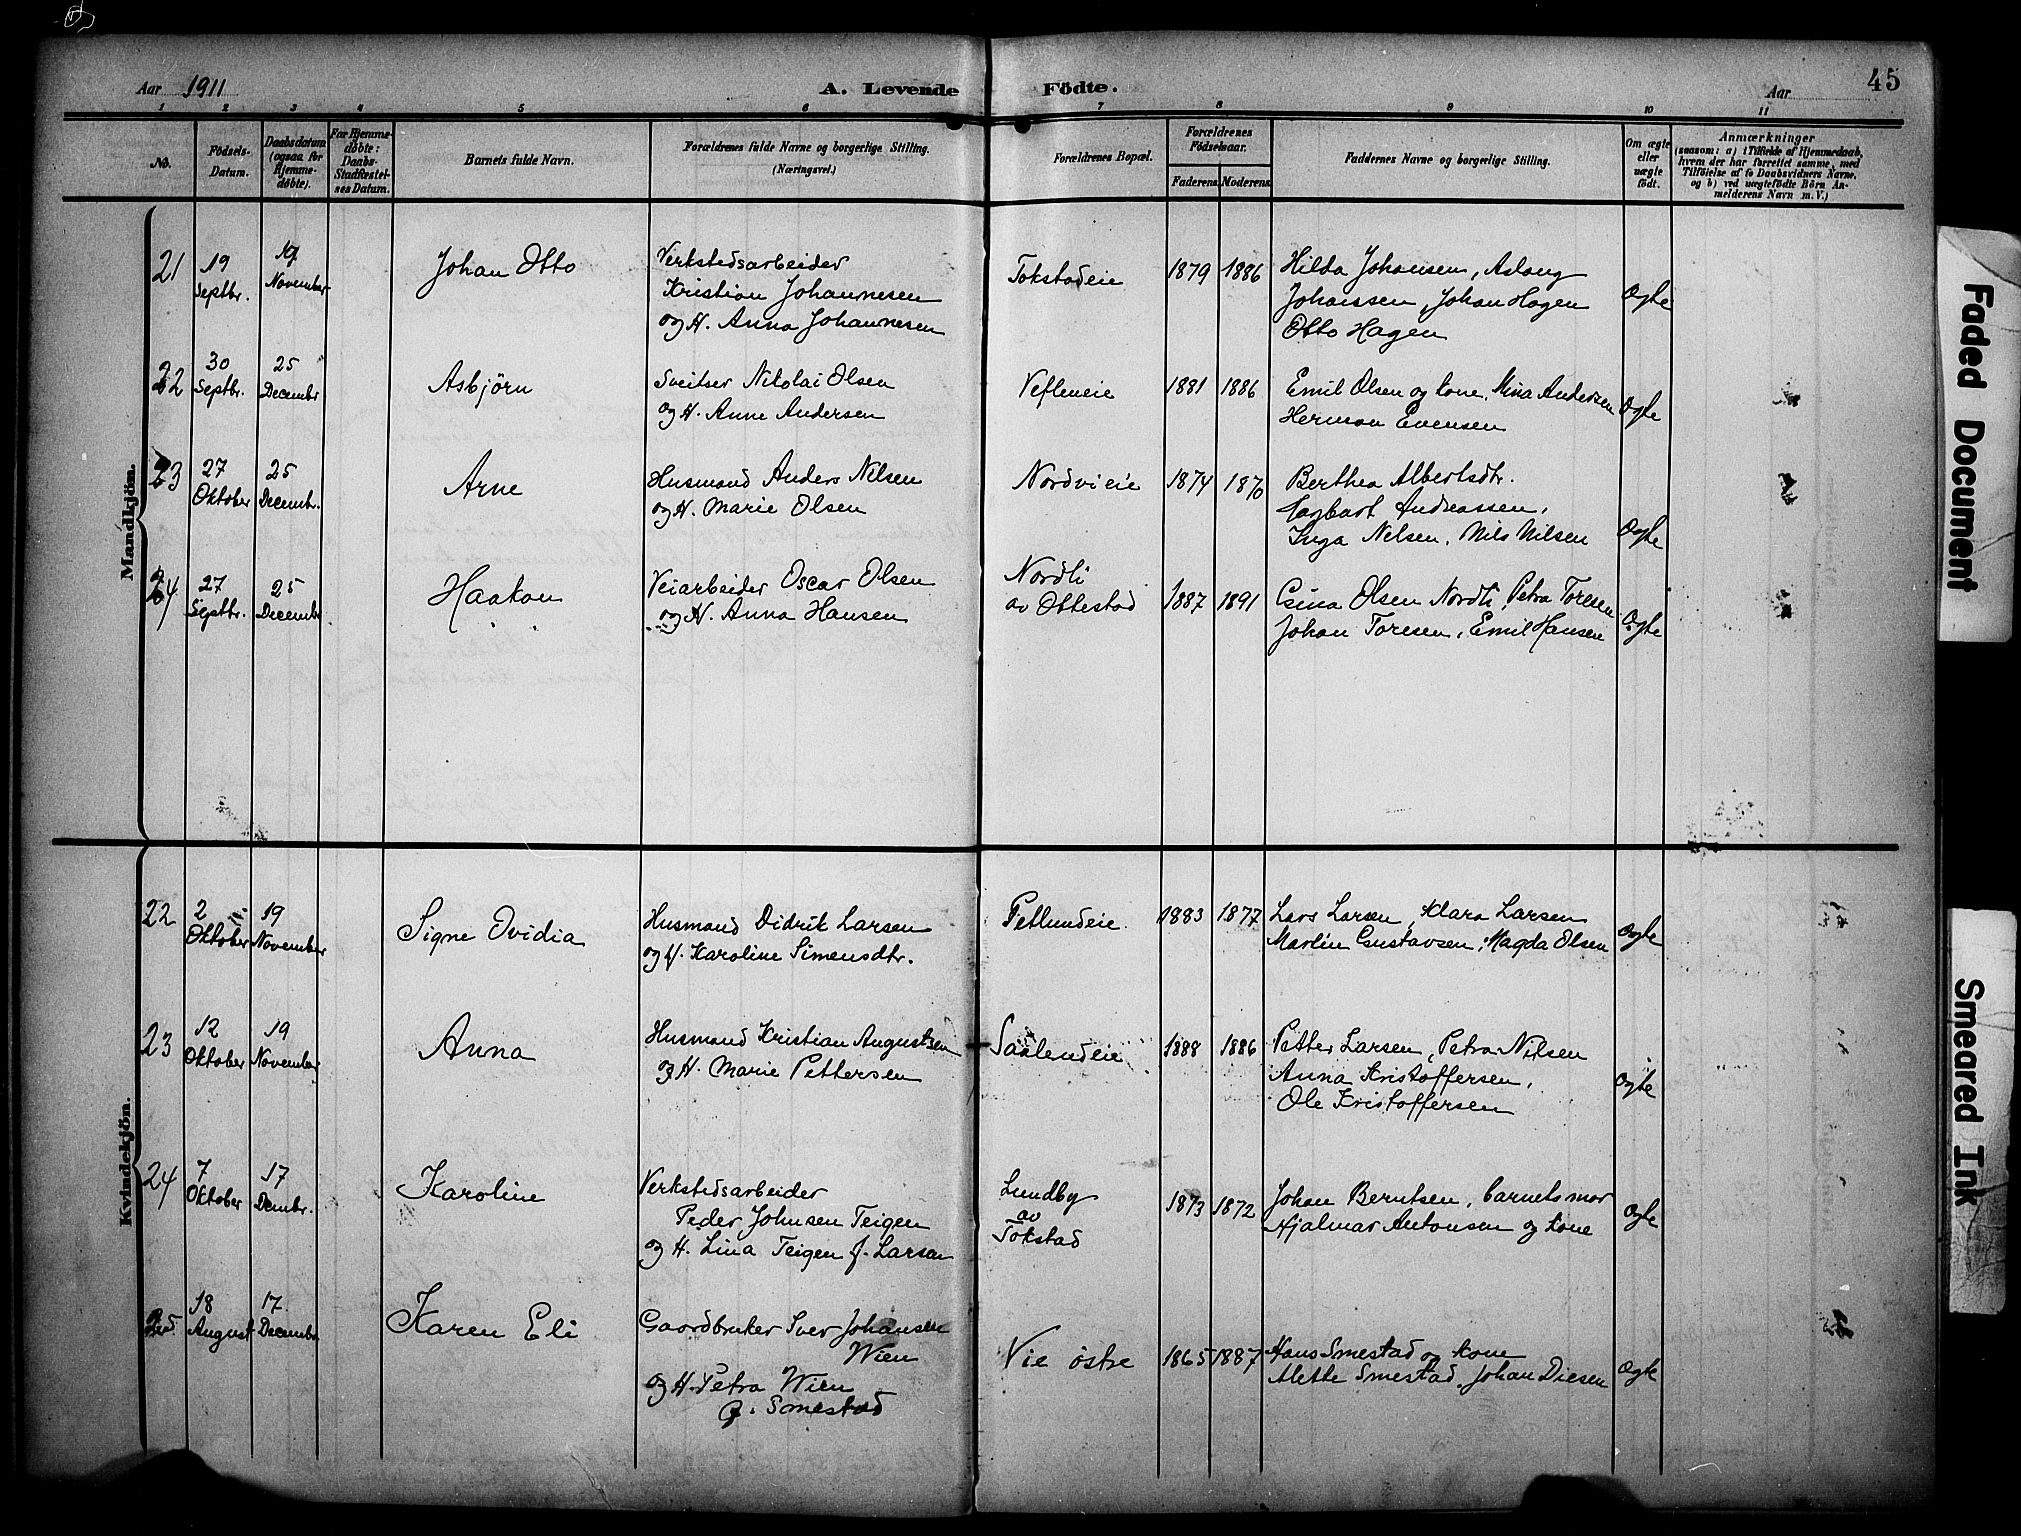 Aar 1911
A. Levende Födte.
Aar
45
1 2 3 4 5 6 7 8 9 10 11
No.
Födsels-
Datum.
Daabsdatum
(ogsaa for
Hjemme-
döbte).
For Hjemme-
döbte:
Daabs-
Stadfæstel-
ses Datum.
Barnets fulde Navn.
Forældrenes fulde Navne og borgerlige Stilling.
(Næringsvei.)
Forældrenes Bopæl.
Forældrenes
Födselsaar.
Faderens Moderens
Faddernes Navne og borgerlige Stilling.
Om ægte
eller
uægte
födt.
Anmærkninger
(saasom: a) i Tilfælde af Hjemmedaab,
hvem der har forrettet samme, med
Tilföielse af to Daabsvidners Navne,
og b) ved uægtefödte Börn An-
melderens Navn m. V.)
Mandkjön.
21
19
Septbr.
19
November
Johan Otto
Verkstedsarbeider
Kristian Johannesen
og H. Anna Johannesen
Tokstadeie
1879 1886
Hilda Johansen, Aslaug
Johanssen, Johan Hagen
Otto Hagen
Ægte
22
30
Septbr.
25
Decembr
Asbjörn
Sveitser Nikolai Olsen
og H. Anne Andersen
Vefleneie
1881 1886
Emil Olsen og kone, Mina Andersen
Herman Evensen
Ægte
23
27
Oktober
25
Decembr.
Arne
Husmand Anders Nilsen
og H. Marie Olsen
Nordvieie
1874 1870
Berthea Albertsdtr.
Hagbart Andreassen,
Inga Nelsen, Nils Nilsen
Ægte
24
27
Septbr.
25
Decembr
Haakon
Veiarbeider Oscar Olsen
og H. Anna Hansen
Nordli
av Ottestad
1887 1891
Gina Olsen Nordli, Petra Toresen
Johan Toresen, Emil Hansen
Ægte
Kvindekjön.
22
2
Oktober
19
November
Signe Ovidia
Husmand Didrik Larsen
og H. Karoline Simensdtr.
Petlundeie
1883 1877
Lars Larsen, Klara Larsen
Martin Gustavsen, Magda Olsen
Ægte
23
12
Oktober
19
November
Anna
Husmand Kristian Augustsen
og H. Marie Pettersen
Saalundeie
1888 1886
Petter Larsen, Petra Nilsen
Anna Kristoffersen,
Ole Kristoffersen
Ægte
24
7
Oktober
17
Dcembr.
Karoline
Verkstedsarbeider
Peder Johnsen Teigen
og H. Lina Teigen f. Larsen
Lundby
av
Tokstad
1873 1872
Johan Berntsen, barnets mor
Hjalmar Antonsen og kone
Ægte
25
18
August
17
Decembr.
Karen Eli
Gaardbruker Iver Johansen
Wien
og H. Petra Wien
f. Smestad
Vie østre
1865 1887
Hans Smestad og kone
Alette Smestad, Johan Diesen
Ægte
Faded Document
Smeared Ink